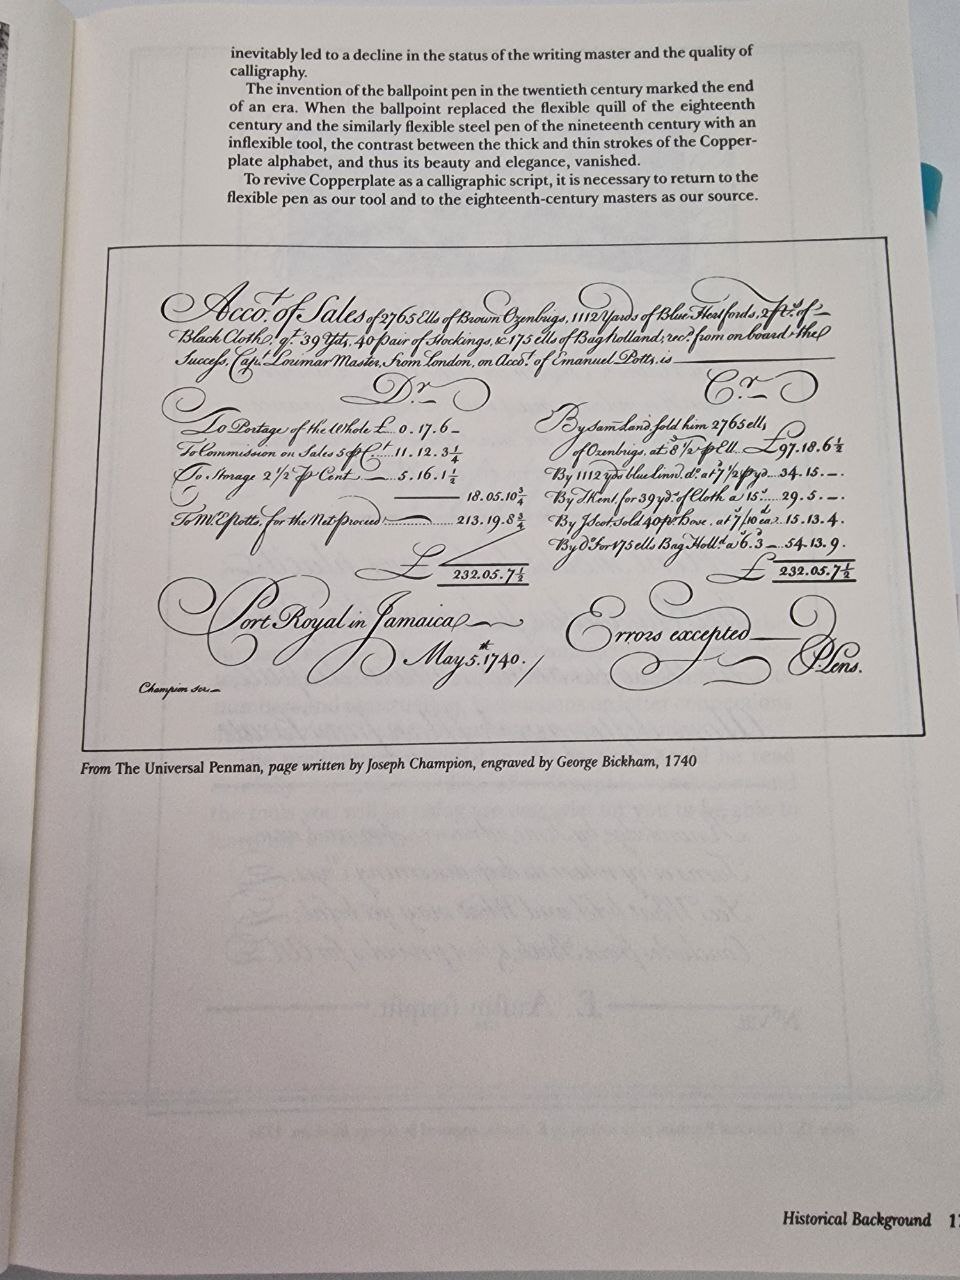 inevitably led to a decline in the status of the writing master and the quality of
calligraphy.
The invention of the ballpoint pen in the twentieth century marked the end
of an era. When the ballpoint replaced the flexible quill of the eighteenth
century and the similarly flexible steel pen of the nineteenth century with an
inflexible tool, the contrast between the thick and thin strokes of the Copper-
plate alphabet, and thus its beauty and elegance, vanished.
To revive Copperplate as a calligraphic script, it is necessary to return to the
flexible pen as our tool and to the eighteenth-century masters as our source.
Acco.t of Sales of 2765 Ells of Brown Ozenbrigs, 1112 Yards of Blue Hertfords, 2 of
Black Cloth, q.t 39 Yds, 40 pair of Stockings, & 175 ells of Bag Holland; rec.d from on board the
Success, Cap.t Lorimar Master, from London, on Acco.t of Emanuel Potts, is
D.r
To Portage of the Whole £ 0.17.6
To Commission on Sales 5 p C.t 11.12.3¼
To Storage 2 1/2 p Cent 5.16.1½
18.05.10¾
To M.r E Potts, for the Net proceed 213.19.8¾
£ 232.05.7½
C.r
By Sam Land sold him 2765 ells
of Ozenbrigs, at 8 1/2 p Ell £97.18.6½
By 1112 yds blue linn. d.o at 7 1/2 p yd 34.15.-.
By J Kent, for 39 yd.s of Cloth a 15 29.5.-.
By J Scot, sold 40 p.r Hose, at 7/10 ea. 15.13.4.
By D.o for 175 ells Bag Holl.d a 6.3 54.13.9.
£ 232.05.7½
Port Royal in Jamaica
May 5.th 1740.
Errors excepted
P. Pens.
Champion scr.
From The Universal Penman, page written by Joseph Champion, engraved by George Bickham, 1740
Historical Background